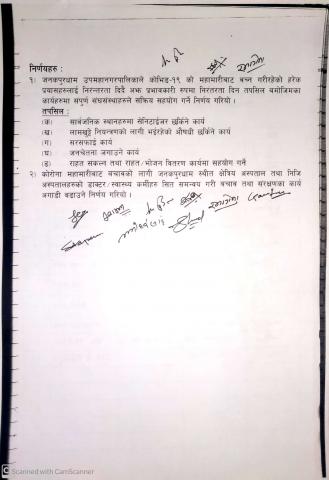 निर्णयहरु :
१) जनकपुरधाम उपमहानगरपालिकाले कोभिड-१९ को महामारीबाट बच्न गरीरहेको हरेक
प्रयासहरुलाई निरन्तरता दिदै अझ प्रभावकारी रुपमा निरतरता दिन तपसिल बमोजिमका
कार्यहरुमा सपुर्ण संघसंस्थाहरुले सक्रिय सहयोग गर्ने निर्णय गरियो ।
तपसिल :
(क) सार्वजनिक स्थानहरुमा सेनिटाईजर छर्किने कार्य
(ख) लामखुट्टे नियन्त्रणको लागी भईरहेको औषधी छर्किने कार्य
(ग) सरसफाई कार्य
(घ) जनचेतना जगाउने कार्य
(ड) राहत संकलन तथा राहत/भोजन वितरण कार्यमा सहयोग गर्ने
२) कोरोना महामारीबाट बचाबको लागी जनकपुरधाम स्थीत क्षेत्रिय अस्पताल तथा निजि
अस्पतालहरुको डाक्टर/स्वास्थ्य कर्मीहरु सित समन्वय गरी बचाब तथा संरक्षणका कार्य
अगाडी बढाउने निर्णय गरियो ।
CS Scanned with CamScanner